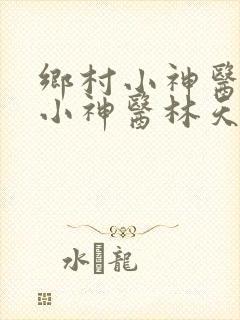 鄉村小神醫
小神醫林天
水龍